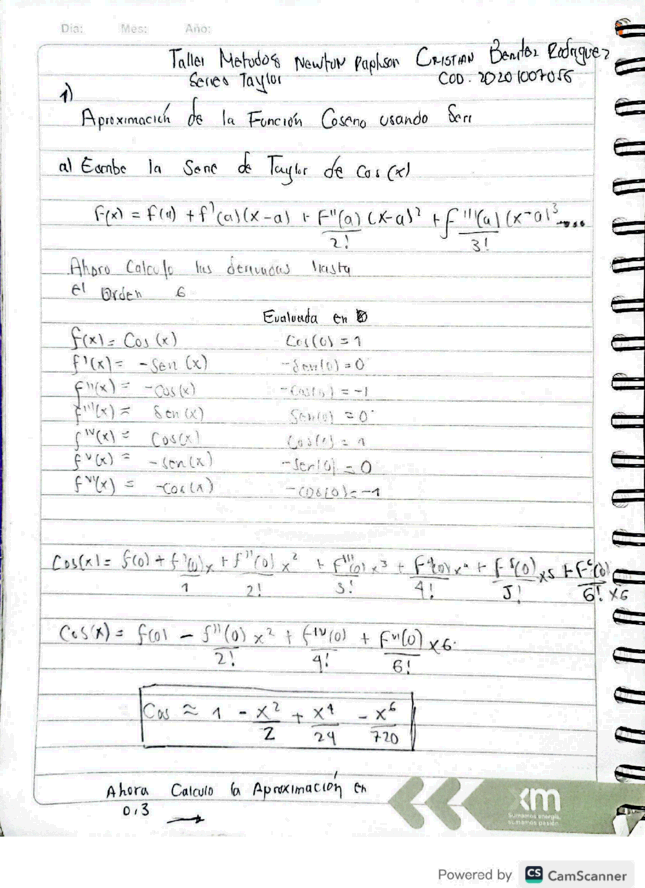 Dia: Mes: Año:
Taller Metodos Newton Raphson Cristian Benitez Rodriguez
Series Taylor COD. 20201007056
1)
Aproximación de la Función Coseno usando Seri
a) Escribe la Serie de Taylor de Cos(x)
f(x) = f(a) + f'(a)(x-a) + f''(a)/2! (x-a)² + f'''(a)/3! (x-a)³ ....
Ahora Calculo las derivadas hasta
el Orden 6
Evaluada en 0
f(x) = Cos(x) Cos(0) = 1
f'(x) = -Sen(x) -Sen(0) = 0
f''(x) = -Cos(x) -Cos(0) = -1
f'''(x) = Sen(x) Sen(0) = 0
f^IV(x) = Cos(x) Cos(0) = 1
f^V(x) = -sen(x) -Sen(0) = 0
f^VI(x) = -Cos(x) -Cos(0) = -1
Cos(x) = f(0) + f'(0)/1 x + f''(0)/2! x² + f'''(0)/3! x³ + f⁴(0)/4! x⁴ + f⁵(0)/5! x5 + f⁶(0)/6! x6
Cos(x) = f(0) - f''(0)/2! x² + f^IV(0)/4! + f^VI(0)/6! x6
Cos ≈ 1 - x²/2 + x⁴/24 - x⁶/720
Ahora Calculo la Aproximación en
0,3 →
xm
Sumamos energía,
sumamos pasión
Powered by CS CamScanner